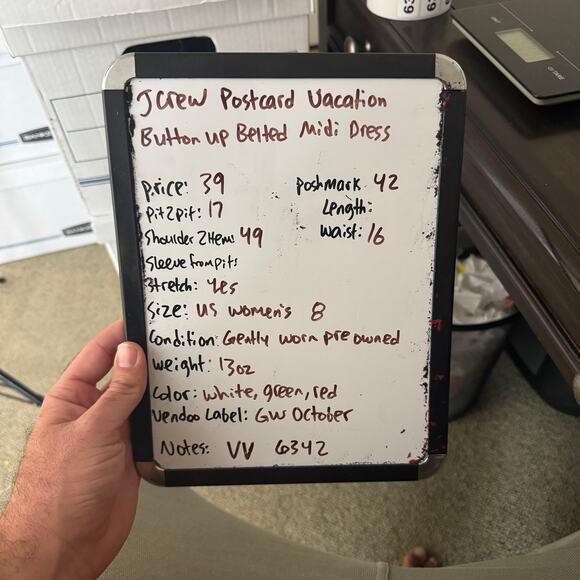 JCrew Postcard Vacation
Button up Belted Midi Dress
price: 39
poshmark 42
Pit2pit: 17
Length:
Shoulder 2 Hem: 49
Waist: 16
Sleeve from pits
Stretch: Yes
Size: US women's 8
Condition: Gently worn pre owned
Weight: 13oz
Color: white, green, red
Vendoo Label: GW October
Notes: VV 6342